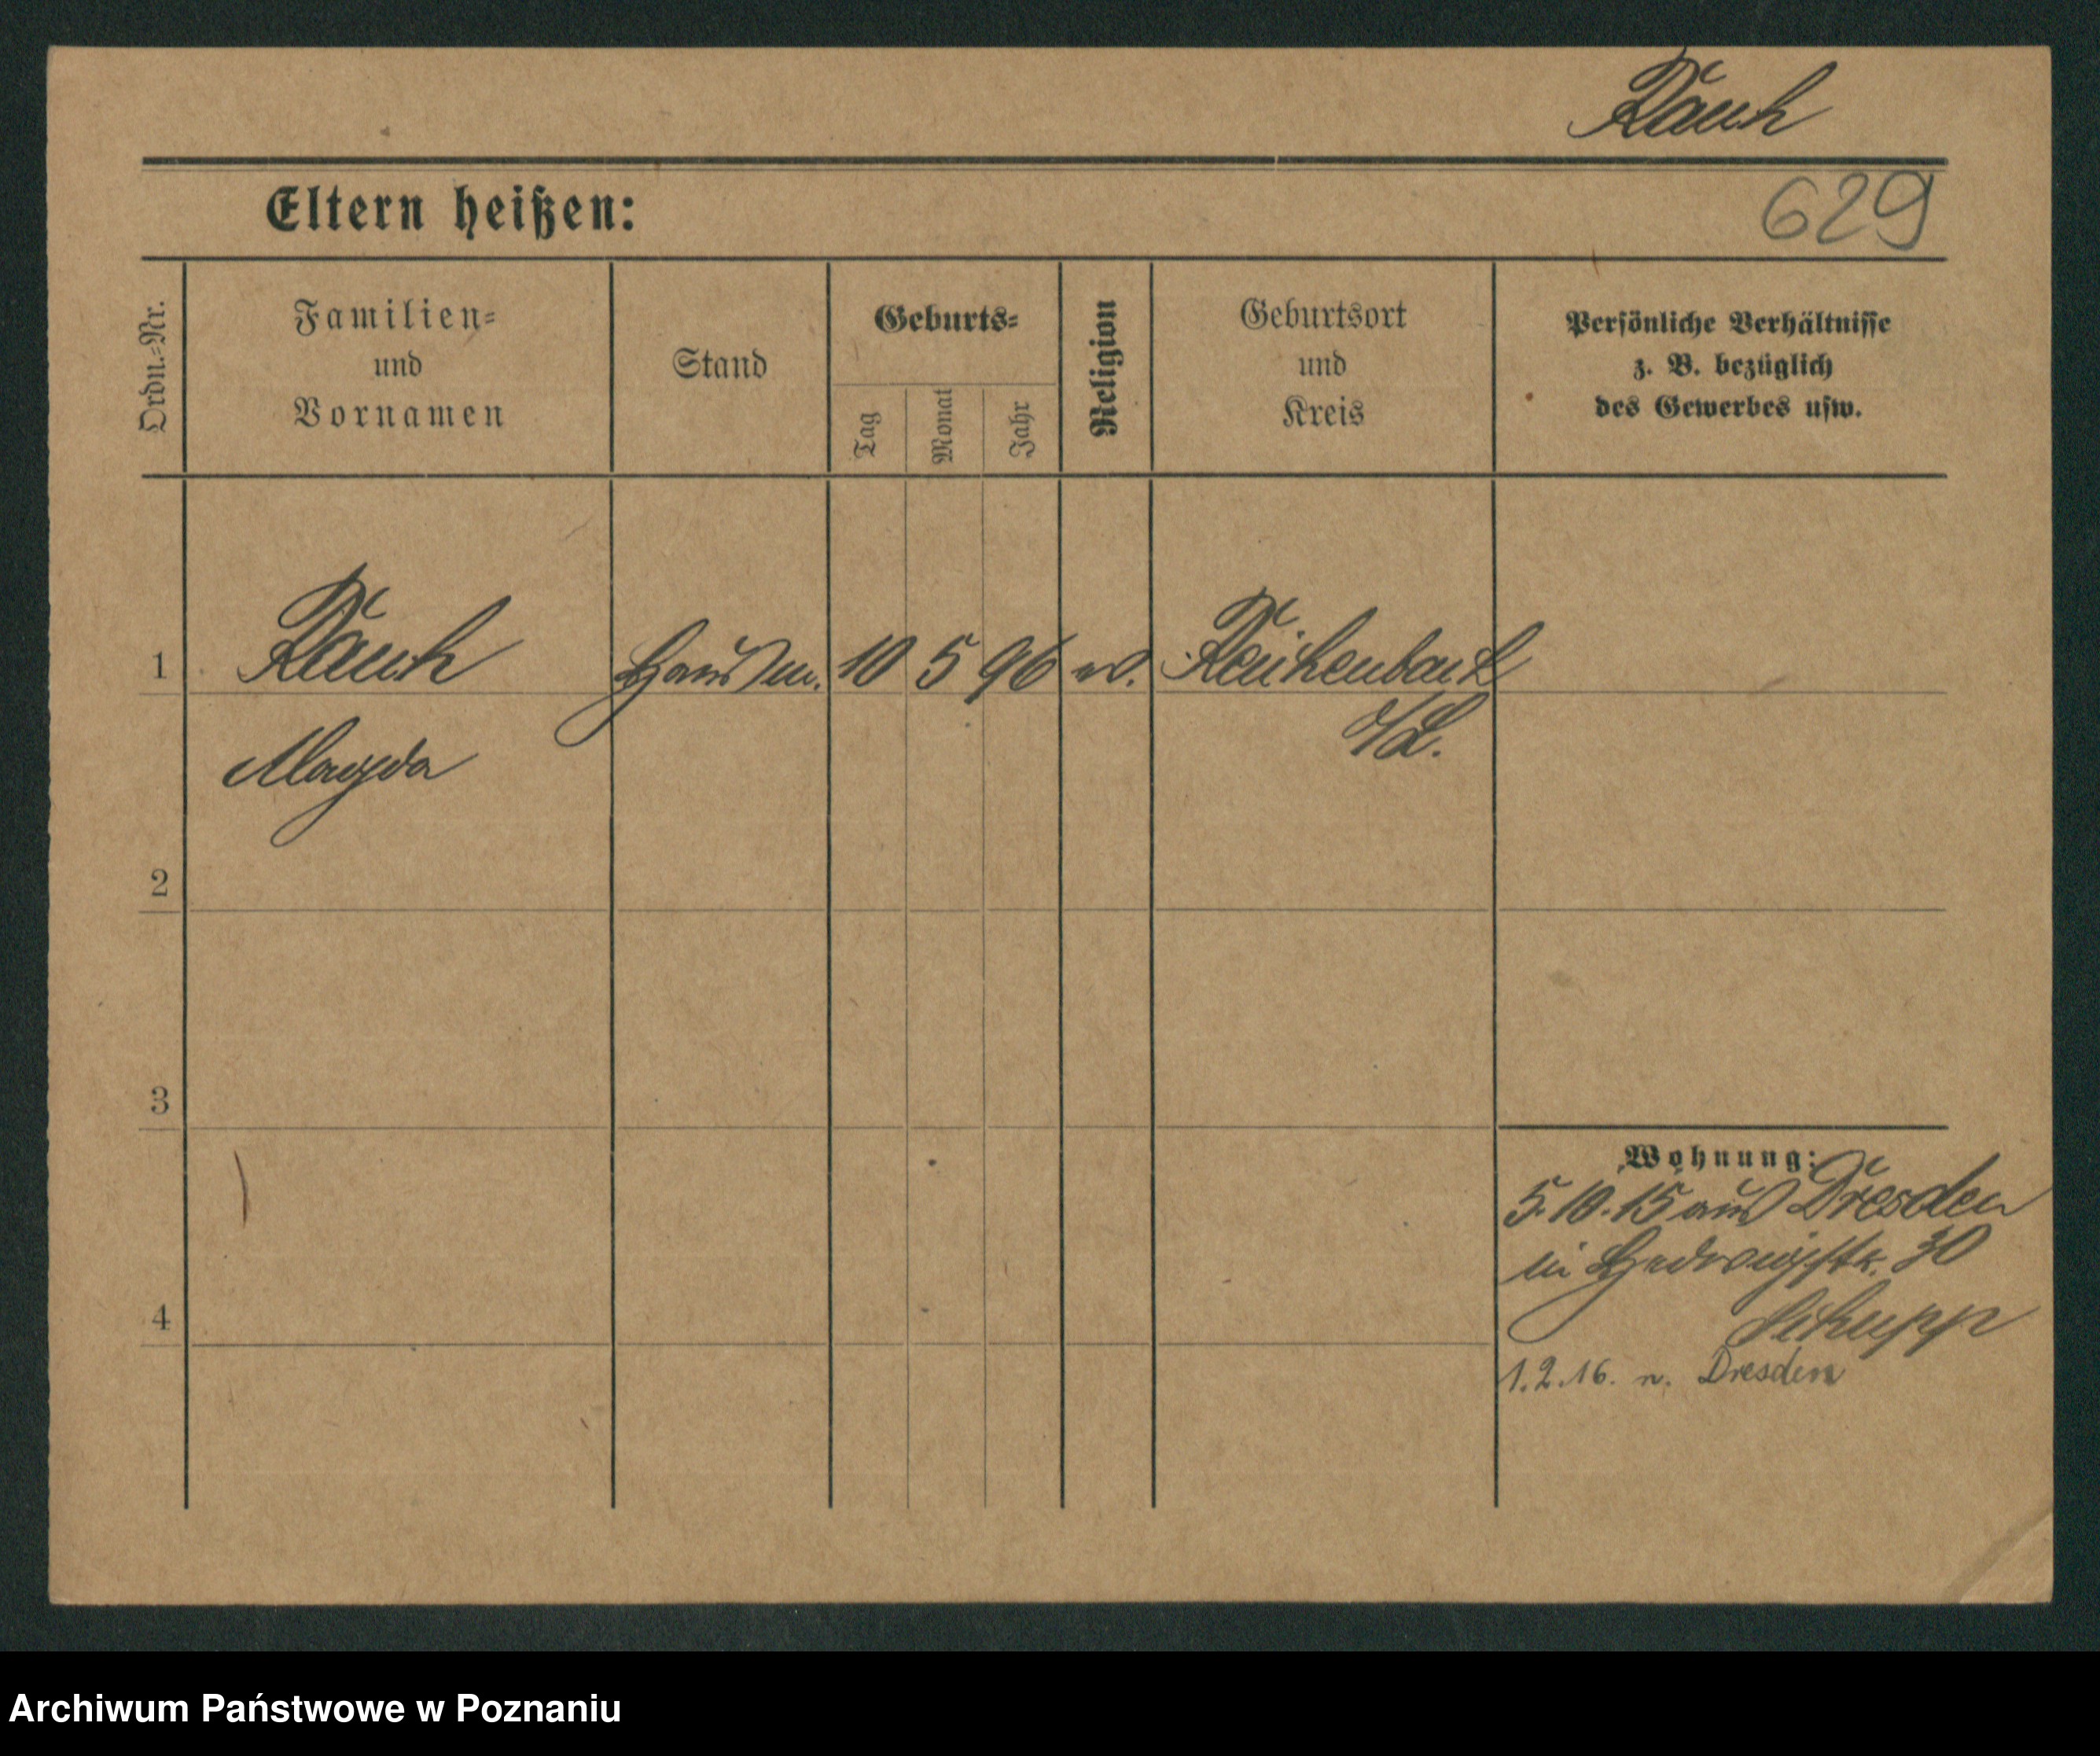 Rauh
Eltern heißen:
629
Ordn.-Nr.
Familien-
und
Vornamen
Stand
Geburts-
Tag
Monat
Jahr
Religion
Geburtsort
und
Kreis
Persönliche Verhältnisse
z. B. bezüglich
des Gewerbes usw.
1
Rauh
Hausm.
10
5
96
Reichenbach
Magda
i/L.
2
3
Wohnung:
5.10.15 aus Dresden
in Hedwigstr. 30
4
Schupp
1.2.16. n. Dresden
Archiwum Państwowe w Poznaniu